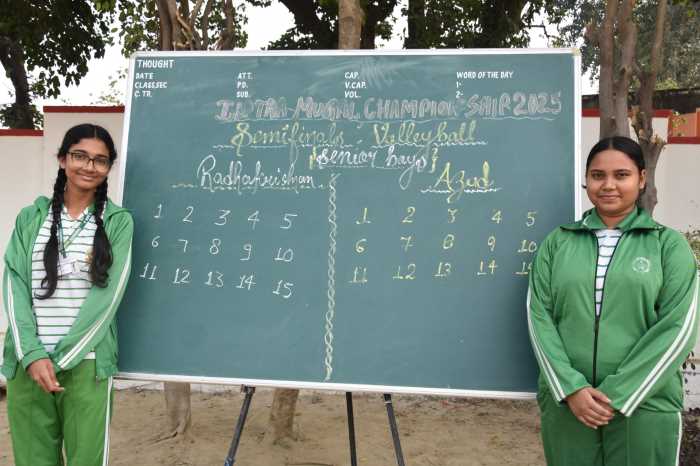 THOUGHT
DATE ATT. CAP. WORD OF THE DAY
CLASS,SEC PD. V.CAP. 1-
C. TR. SUB. VOL. 2-
INTRA-MURAL CHAMPION-SHIP 2025
Semifinals Volleyball
{Senior boys}
Radhakrishnan Azad
1 2 3 4 5 1 2 3 4 5
6 7 8 9 10 6 7 8 9 10
11 12 13 14 15 11 12 13 14